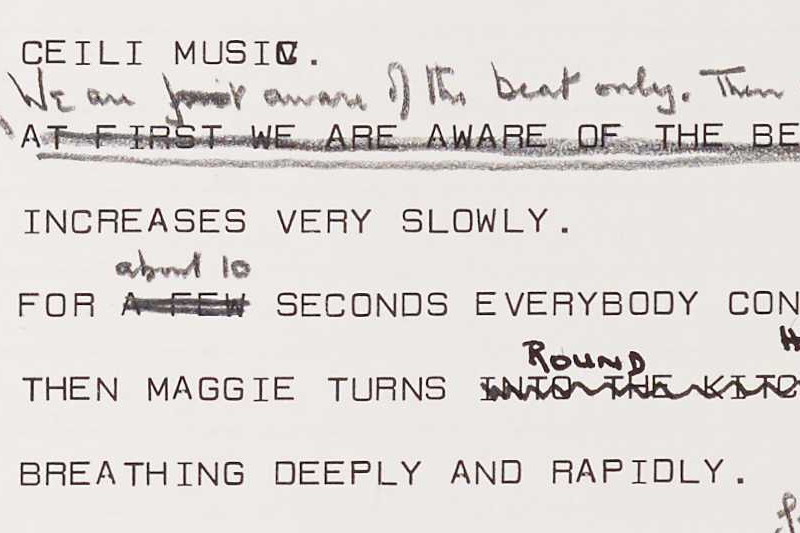 CEILI MUSIC.
We are just aware of the beat only. Then
AT FIRST WE ARE AWARE OF THE BE
INCREASES VERY SLOWLY.
about 10
FOR A FEW SECONDS EVERYBODY CON
ROUND
THEN MAGGIE TURNS INTO THE KITC
BREATHING DEEPLY AND RAPIDLY.